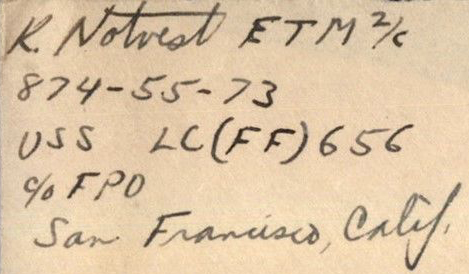 R. Notvest ETM 2/c
874-55-73
USS LC(FF) 656
c/o FPO
San Francisco, Calif.